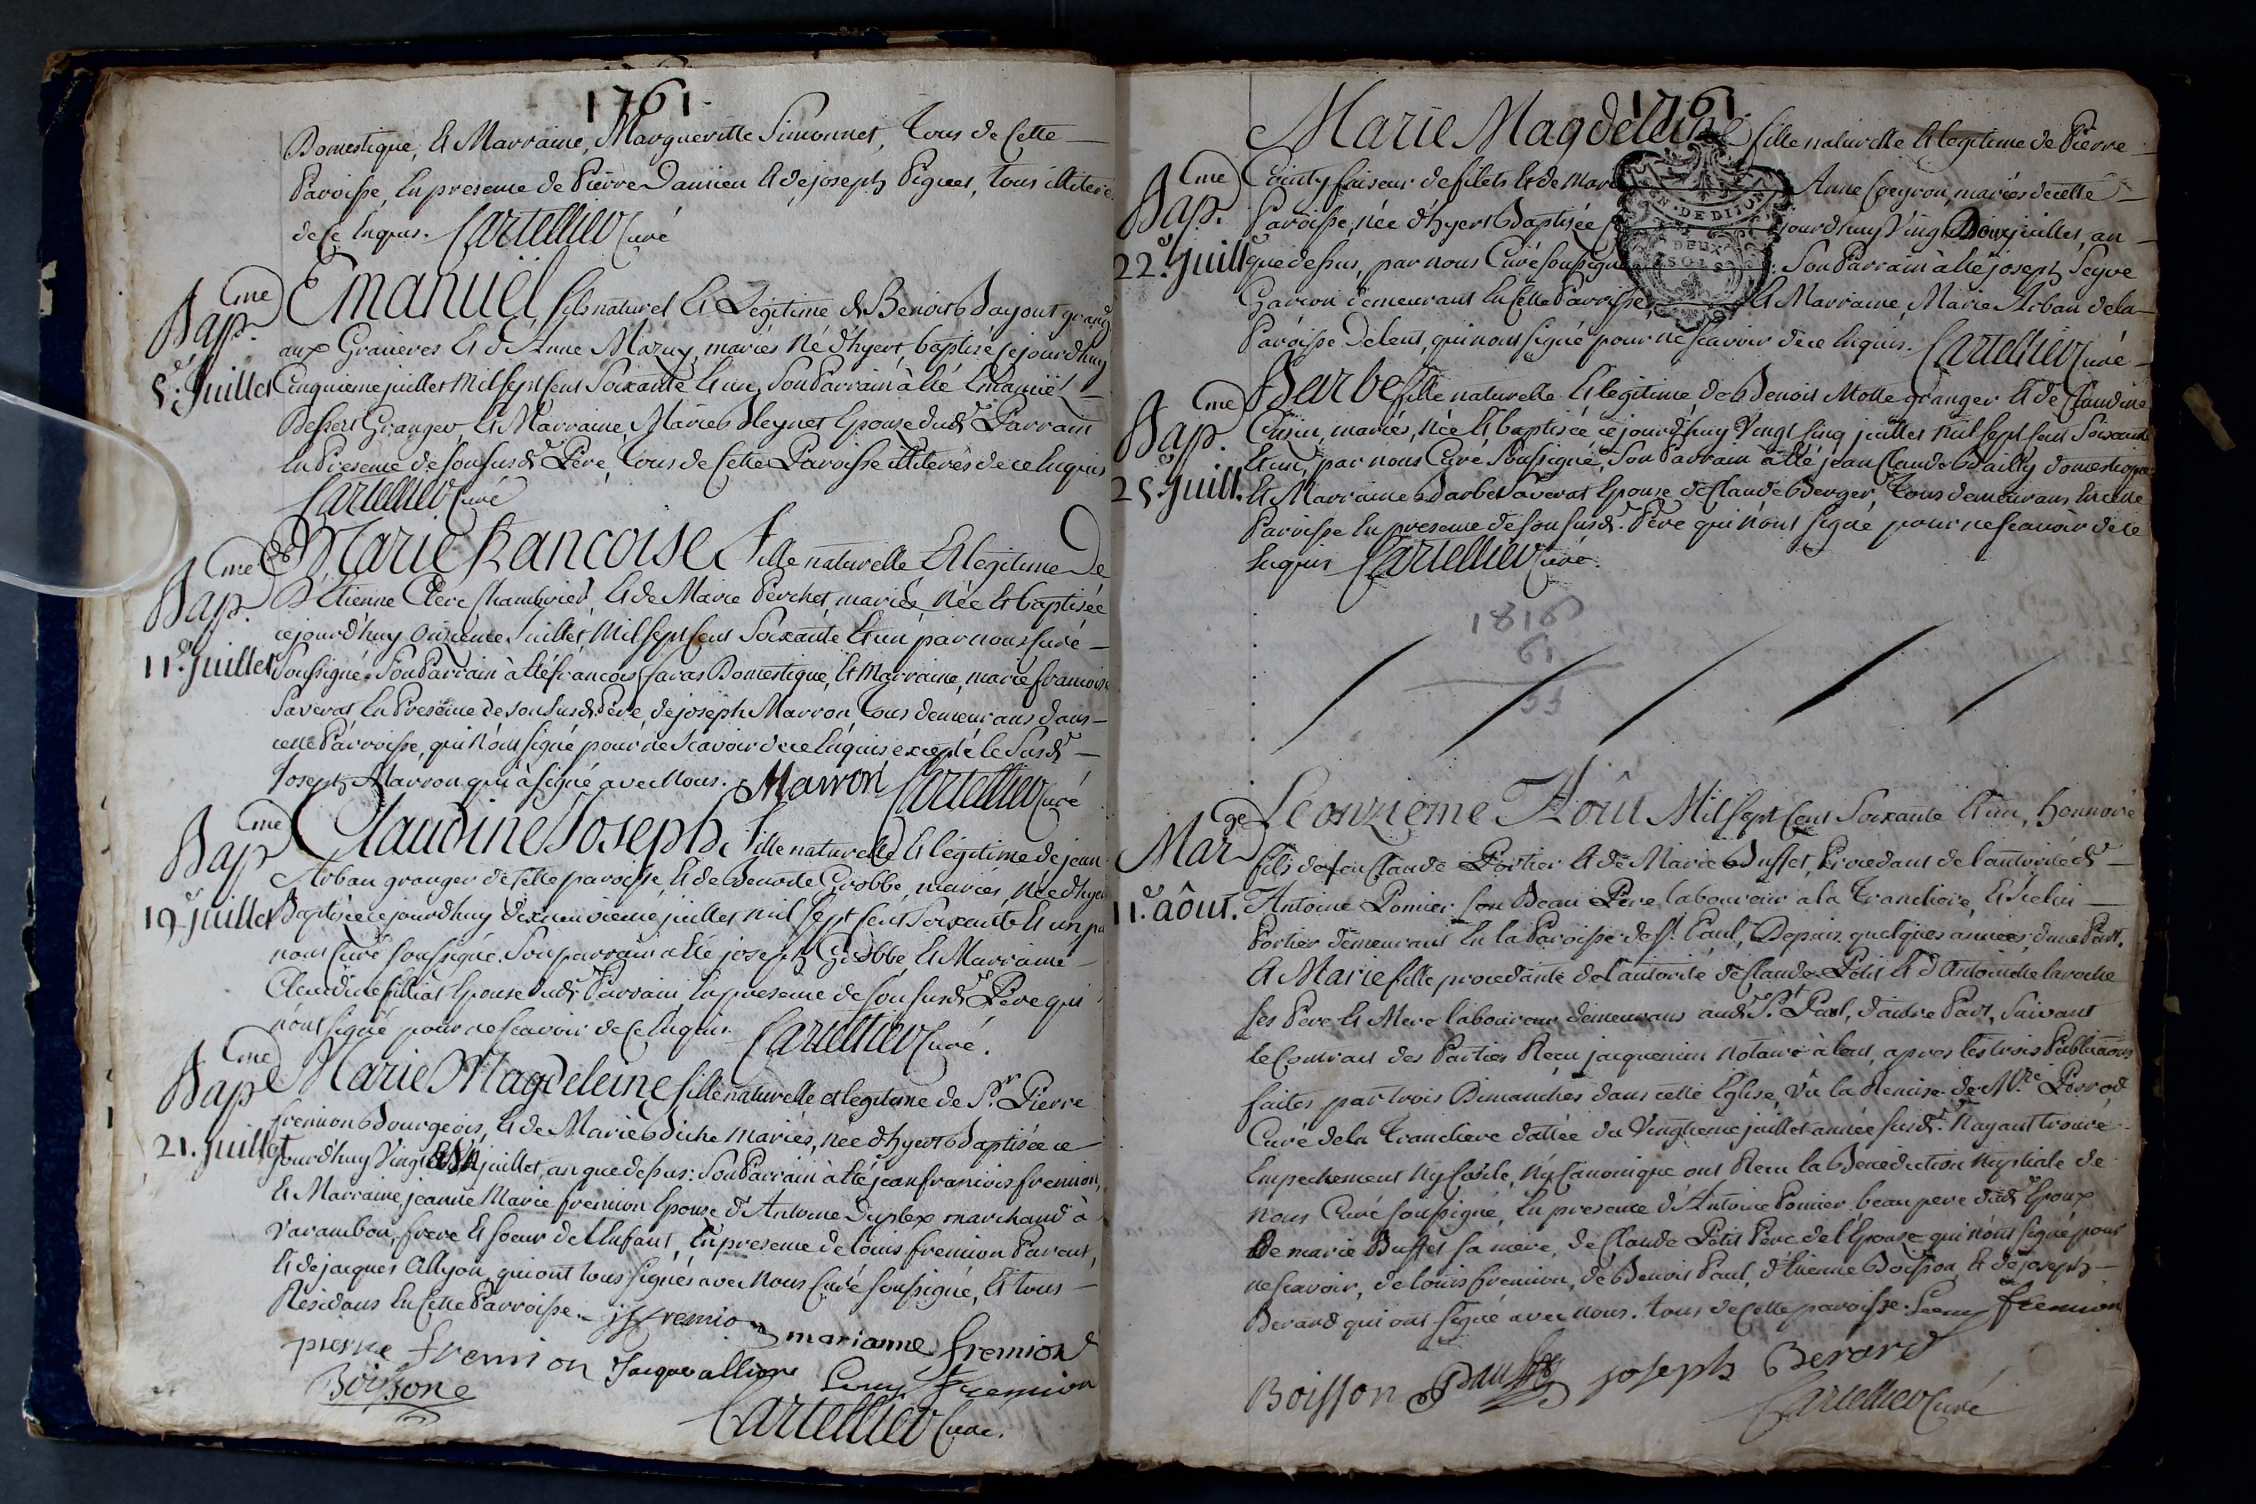 1761.
Domestique, Et Marraine, Margueritte Simonnet, Tous de Cette
Paroisse, En presence de Pierre Damien Et de joseph Piguet, tous illiterés
de Ce Enquis. Cartellier Curé
Bap.me
5.e Juillet
Emanuël fils naturel Et Légitime de Benoit Bajout granger
aux Granieres Et d'Anne Mazuy, mariés né d'hyert, baptisé ce jourd'huy
Cinquieme juillet Mil sept Cent Soixante Et un, Son Parrain à Eté Emanuël
Dessert Granger, Et Marraine, Marie Bleynet Epouse dud.t Parrain
En Presence de son susd.t Pere, tous de Cette Paroisse illiterés de ce Enquis
Cartellier Curé
Bap.me
11.e Juillet
Marie francoise Fille naturelle Et legitime De
D'Etienne Clerc Chambrier, Et de Marie Perchet, mariés, née Et baptisée
cejourd'huy Onzieme Juillet Mil sept Cent Soixante Et un par nous Curé
Soussigné. Son Parrain à Eté francois Domestique, Et Marraine, marie francoise
Saverat En Presence de son susd.t Pere, de joseph Marron, Tous demeurans dans
cette Parroisse, qui N'ont signé pour ne Scavoir de ce Enquis excepté le Susd.t
Joseph Marron qui à signé avec Nous. Marron Cartellier Curé
Bap.me
19.e juillet
Claudine Joseph. Fille naturelle Et légitime de jean
Arban granger de cette paroisse, Et de Benoite Grobbé, mariés, Née d'hyer
Baptisée ce jourd'huy dixneuvieme juillet mil sept Cent Soixante Et un par
nous Curé soussigné. Son parrain a Eté joseph Grobbé Et Marraine
Claudine filliat Epouse dud.t Parrain En presence de son susd.t Pere qui
n'ont signé pour ne scavoir de Ce Enquis. Cartellier Curé.
Bap.me
21. Juillet
Marie Magdeleine fille naturelle et legitime de S.r Pierre
fremion Bourgeois, Et de Marie Biche mariés, née d'hyert Baptisée ce
jourd'huy Vingt juillet, an que dessus: Son Parrain à Eté jean francois fremion,
Et Marraine, jeanne Marie fremion Epouse d'Antoine Duplex marchand à
Varambon, frere Et soeur de L'Enfant, En presence de louis fremion Parent,
Et de jacques Allyon, qui ont tous signés avec Nous Curé soussigné, Et tous
Residans En Cette Parroisse. jf fremion
marianne fremion
pierre fremion Jacque allion
Louy fremion
Boissone
Cartellier Curé.
1761.
Bap.me
22.e Juill.
Marie Magdeleine fille naturelle Et legitime de Pierre
Cointy faiseur de filets Et de Anne Coeyron, mariés de cette
Paroisse, née d'hyert Baptisée jourd'huy Vingt Deux juillet, an
que dessus, par nous Curé soussigné Son Parrain à Eté joseph Seyve
Garcon demeurant En Cette Parroisse, Et Marraine, Marie Arban de la
Paroisse De lent, qui n'ont signé pour ne scavoir de ce Enquis. Cartellier Curé
N. DE DIJON
DEUX
SOLS
Bap.me
25.e Juill.
Barbe fille naturelle Et legitime de Benoit Motte granger Et de Claudine
Cusin, mariés, née Et baptisée ce jourd'huy Vingt Cinq juillet mil sept cent Soixante
Et un, par nous Curé Soussigné, Son Parrain à Eté jean Claude Bailly domestique
Et Marraine Barbe Saverat Epouse de Claude Berger Tous demeurans En cette
Paroisse En presence de son susd.t Pere qui N'ont signé pour ne scavoir de ce
Enquis Cartellier Curé.
1816
61
55
Mar.ge
11.e août.
Le onzieme Aôut Mil sept Cent Soixante Et un, honnoré
fils de feu Claude Portier Et de Marie Buffet, Procedant de l'autorité d'
Antoine Pomier Son Beau Pere laboureur a la Tranchere, Et Icelui
Portier demeurant En la Paroisse de S.t Paul, Depuis quelques années d'une Part.
Et Marie fille procedante de l'autorité de Claude Petit Et d'Antoinette laroche
ses Pere Et Mere laboureur demeurans aud.t S.t Paul, d'autre Part, Suivant
le Contract des Parties Recu jacquemin Notaire à lent, apres les trois Publications
faites par trois Dimanches dans cette Eglise, Vû la Remise de M.re Perrod
Curé de la Tranchere dattée du Vingtieme juillet année susd.t N'ayant trouvé
Empechement Ny Civile, Ny Canonique ont Recu la Benediction Nuptiale de
nous Curé soussigné, En presence d'Antoine Pomier beau pere dud.t Epoux
de marie Buffet sa mere, de Claude Petit Pere de l'Epouse qui n'ont signé pour
ne scavoir, de louis fremion, de Benoit Paul, d'Etienne Boisson, Et de joseph
Berard qui ont signé avec nous. tous de Cette paroisse. Louy fremion
Boisson Paul joseph Berard
Cartellier Curé